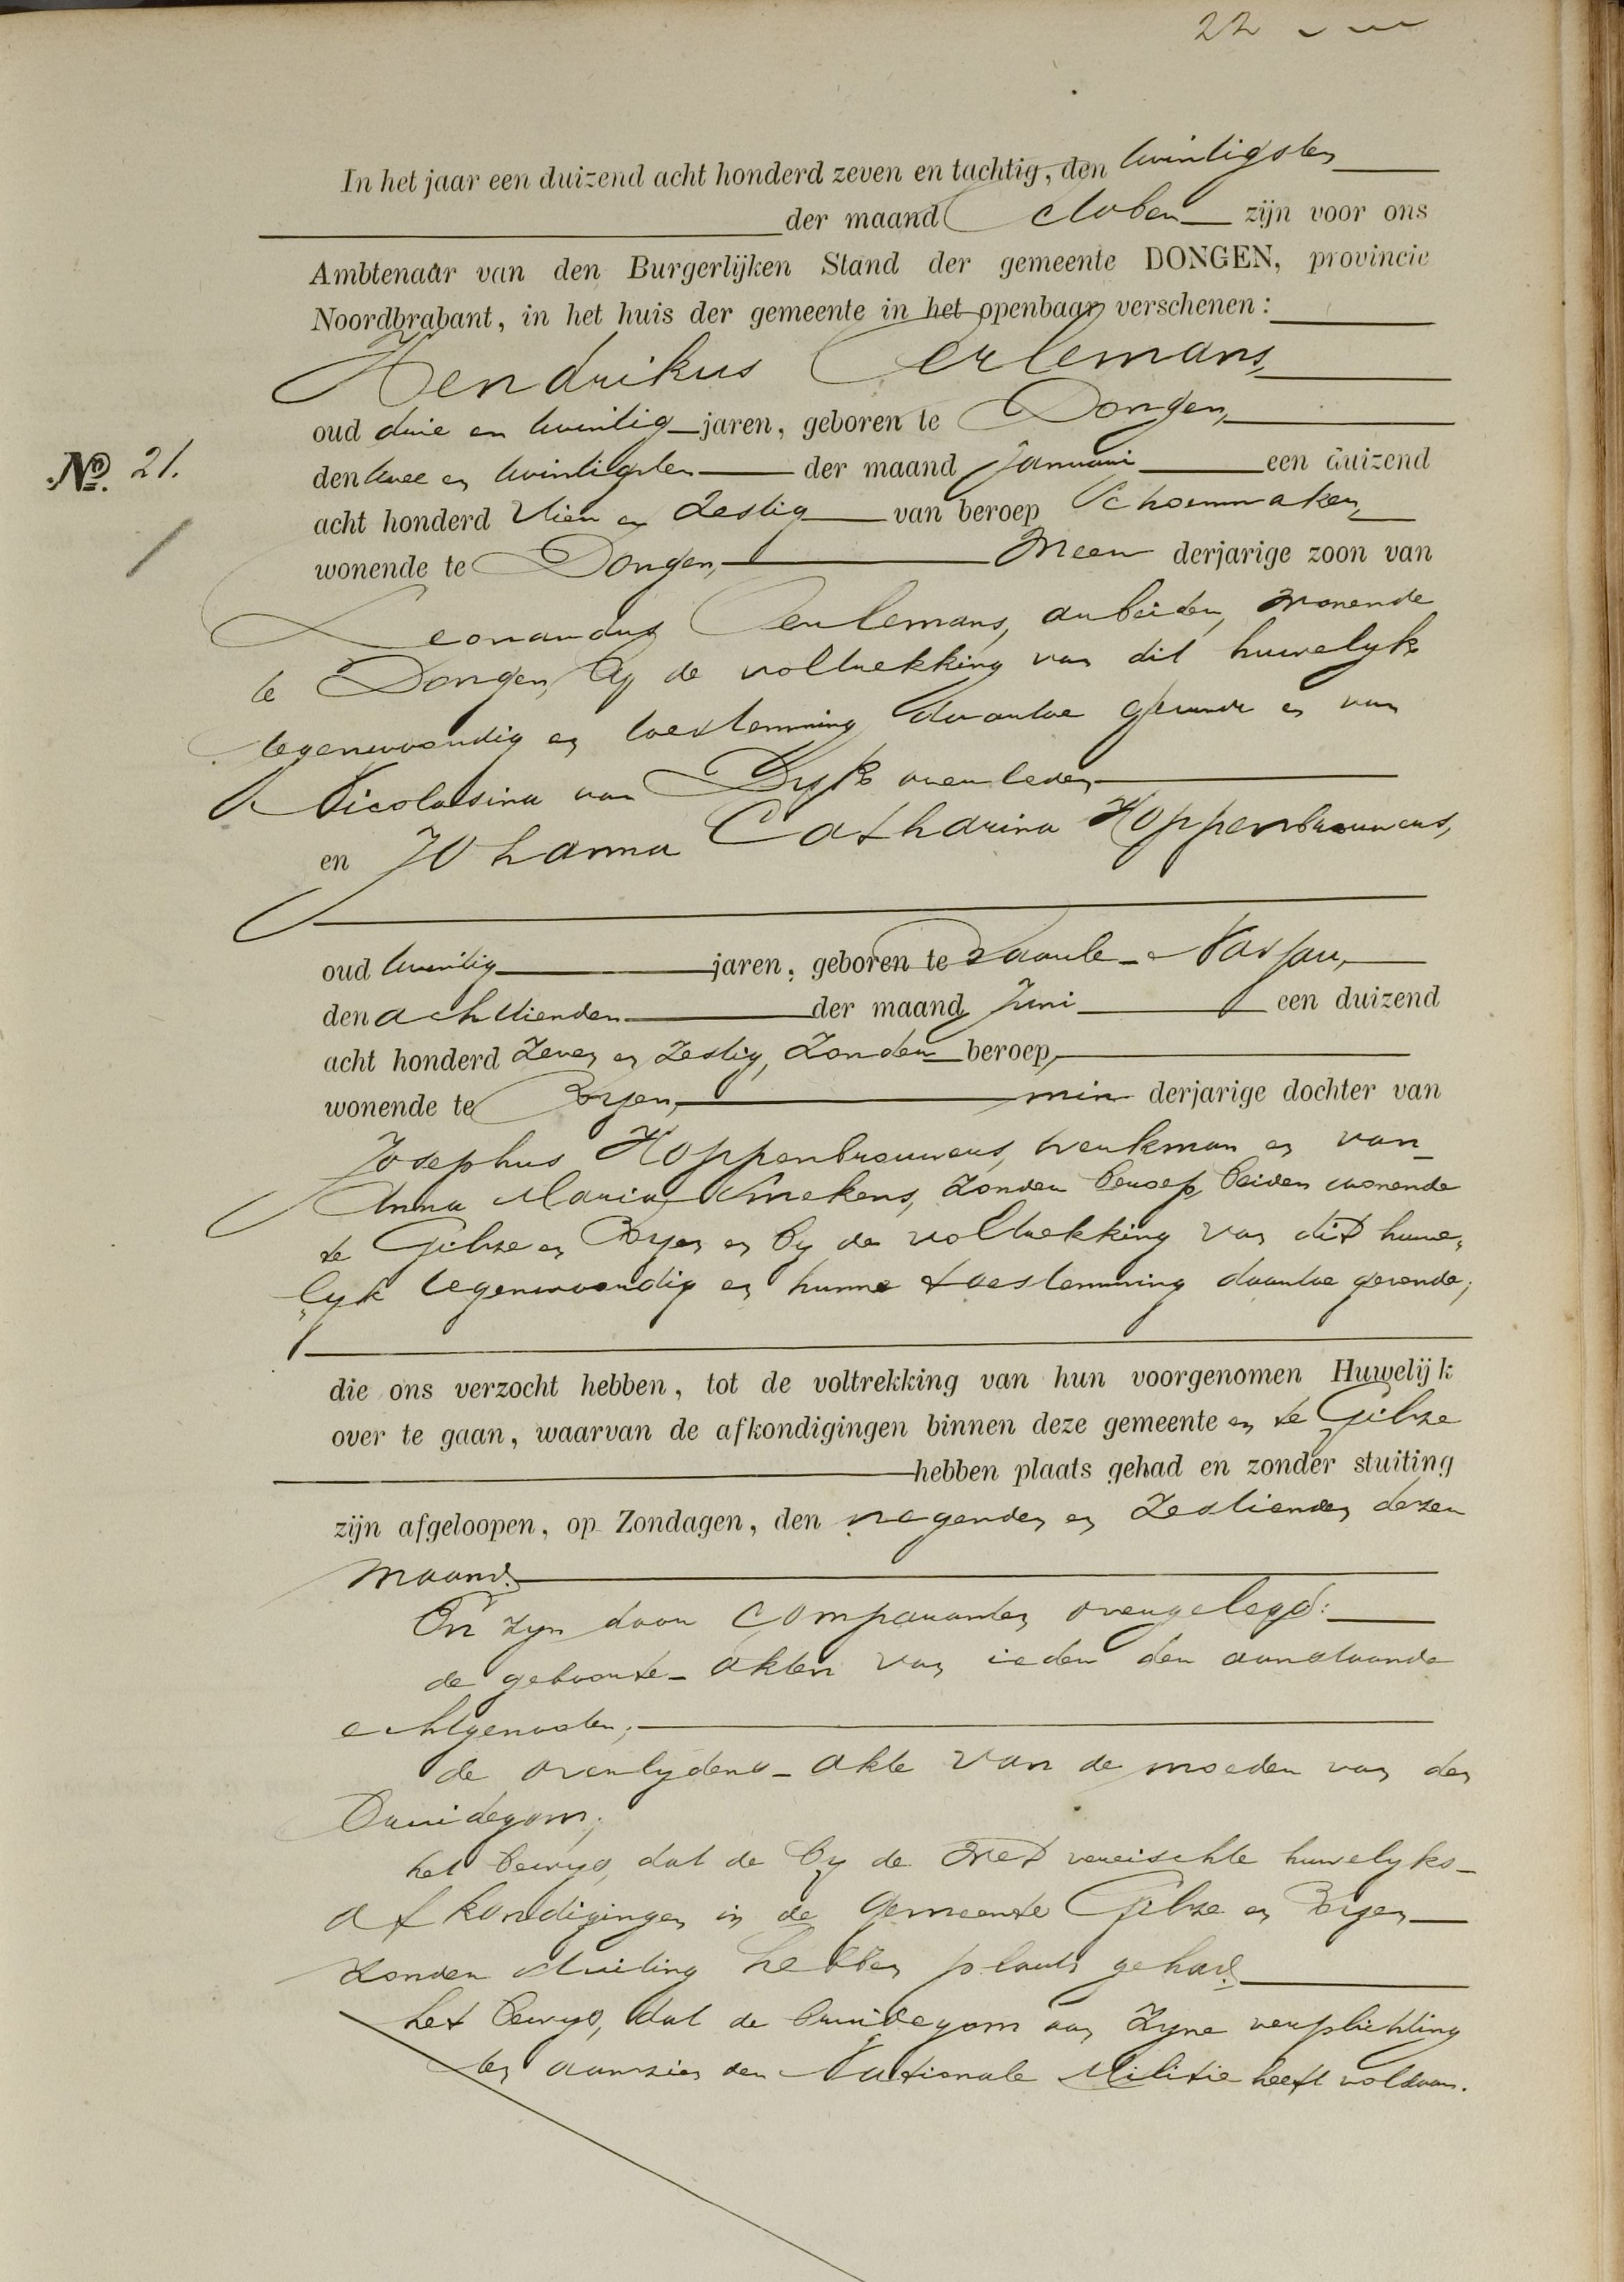 22
In het jaar een duizend acht honderd zeven en tachtig, den twintigsten
der maand October zijn voor ons
Ambtenaar van den Burgerlijken Stand der gemeente DONGEN, provincie
Noordbrabant, in het huis der gemeente in het openbaar verschenen:
Hendrikus Oerlemans,
oud drie en twintig jaren, geboren te Dongen,
No. 21.
den twee en twintigsten der maand Januari een duizend
acht honderd vier en zestig van beroep Schoenmaker,
wonende te Dongen, meer derjarige zoon van
Leonardus Oerlemans, arbeider, wonende
te Dongen, bij de voltrekking van dit huwelyk
tegenwoordig en toestemming daartoe gevende en van
Nicolasina van Dyk overleden
en Johanna Catharina Hoppenbrouwers,
oud twintig jaren, geboren te Baarle-Nassau,
den achttienden der maand Juni een duizend
acht honderd zeven en zestig, zonder beroep,
wonende te Ryen, min derjarige dochter van
Josephus Hoppenbrouwers, werkman en van
Anna Maria Smekens, zonder beroep, beiden wonende
te Gilze en Ryen en by de voltrekking van dit huwe„
„lyk tegenwoordig en hunne toestemming daartoe gevende;
die ons verzocht hebben, tot de voltrekking van hun voorgenomen Huwelijk
over te gaan, waarvan de afkondigingen binnen deze gemeente en te Gilze
hebben plaats gehad en zonder stuiting
zijn afgeloopen, op Zondagen, den negenden en zestienden dezer
maand.
En zyn door comparanten overgelegd:
de geboorte-akten van ieder der aanstaande
echtgenooten;
de overlydens-akte van de moeder van den
Bruidegom;
het bewys, dat de by de wet vereischte huwelyks-
afkondigingen in de gemeente Gilze en Ryen
zonder stuiting hebben plaats gehad.
het bewys, dat de bruidegom aan zyne verplichting
ten aanzien der Nationale Militie heeft voldaan.